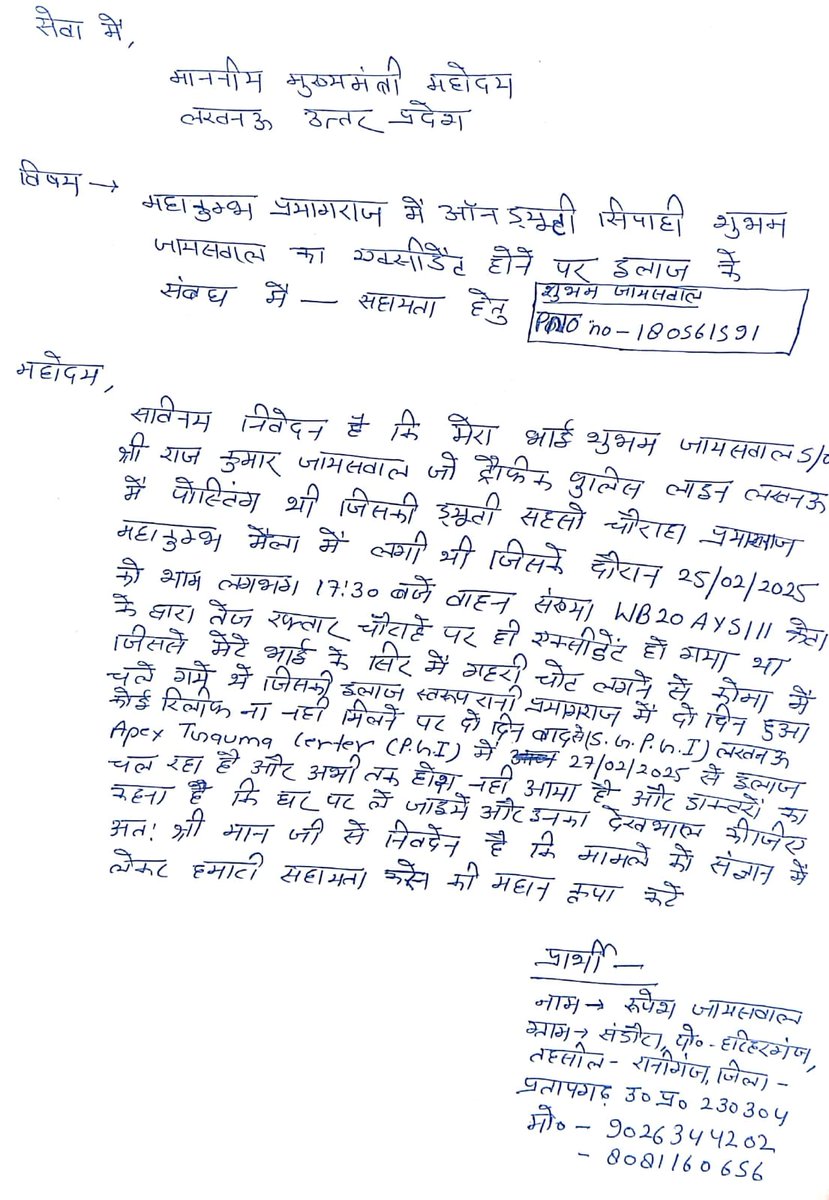 सेवा में,
माननीय मुख्यमंत्री महोदय
लखनऊ उत्तर प्रदेश
विषय → महाकुम्भ प्रयागराज में ऑन ड्यूटी सिपाही शुभम
जायसवाल का एक्सीडेंट होने पर इलाज के
संबध में — सहायता हेतु
शुभम जायसवाल
PNO no-180561591
महोदय,
सविनय निवेदन है कि मेरा भाई शुभम जायसवाल S/o
श्री राज कुमार जायसवाल जो ट्रैफिक पुलिस लाइन लखनऊ
में पोस्टिंग थी जिसकी ड्यूती सहसो चौराहा प्रयागराज
महाकुम्भ मैला में लगी थी जिसके दौरान 25/02/2025
को शाम लगभग 17:30 बजे वाहन संख्या WB20AY5111
के द्वारा तेज रफ्तार चौराहे पर ही एक्सीडेंट हो गया था
जिससे मेरे भाई के सिर में गहरी चोट लगने से कोमा में
चले गये थे जिसकी इलाज स्वरूपरानी प्रयागराज में दो दिन हुआ
कोई रिलीफ ना नही मिलने पर दो दिन बाद (S.G.P.G.I) लखनऊ
Apex Trauma Center (P.G.I) में 27/02/2025 से इलाज
चल रहा है और अभी तक होश नही आया है और डाक्टरों का
कहना है कि घर पर ले जाइये और उनका देखभाल कीजिए
अत: श्री मान जी से निवदेन है कि मामले को संज्ञान में
लेकर हमारी सहायता करने की महान कृपा करें
प्रार्थी —
नाम → रूपेश जायसवाल
ग्राम → संडौरा, पो० - हरिहरगंज,
तहसील - रानीगंज, जिला -
प्रतापगढ़ उ० प्र० 230304
मो० - 9026344202
- 8081160656